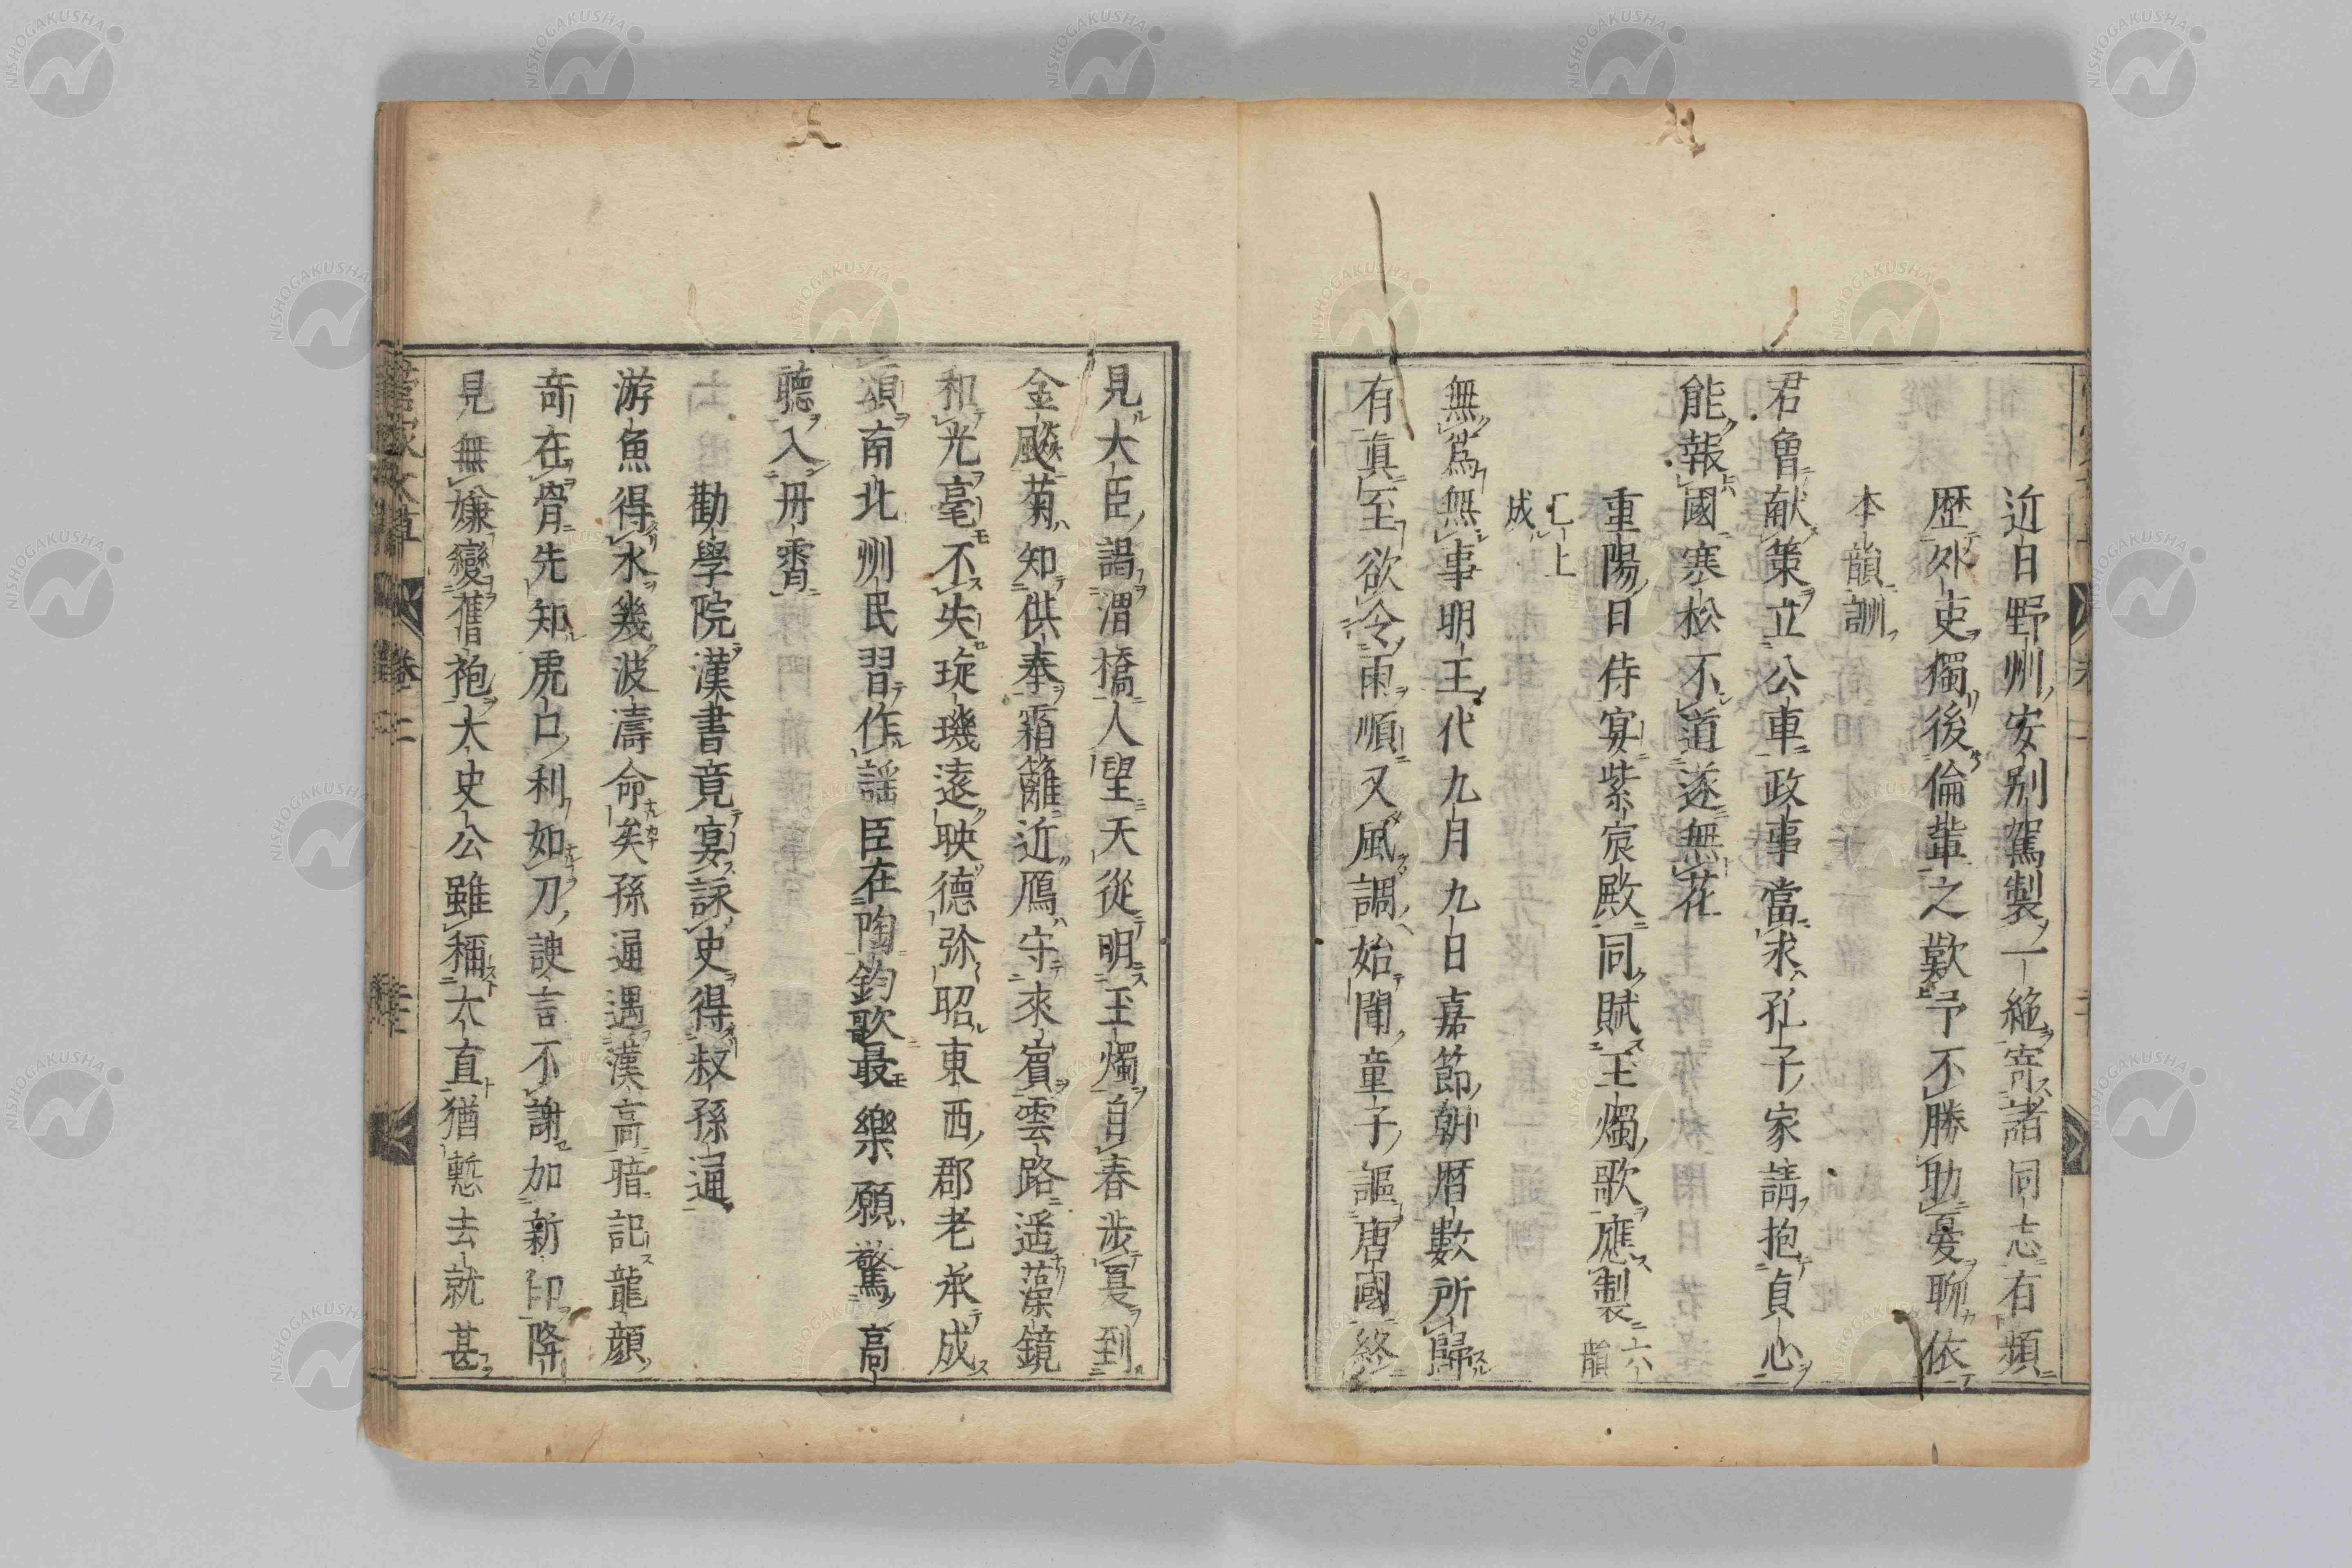 近日野州安別駕製一絶寄諸同志有頻
歴外吏獨後倫輩之歎予不勝助憂聊依
本韻訓
君曾献策立公車政事當求孔子家請抱貞心
能報國寒松不道遂無花
重陽日侍宴紫宸殿同賦玉燭歌應製六韻
已上
成
無爲無事明王代九月九日嘉節朝暦數所歸
有眞至欲令雨順又風調始聞童子謳唐國終
見大臣謁渭橋人望天從明玉燭自春渉夏到
金飈菊知供奉霜籬近鴈守來賓雲路遥藻鏡
和光毫不失琁璣遠映德弥昭東西郡老承成
頌南北州民習作謡臣在陶鈞歌最樂願驚高
聽入丹霄
勸學院漢書竟宴詠史得叔孫通
游魚得水幾波濤命矣孫通遇漢高暗記龍顔
奇在骨先知虎口利如刀諛言不謝加新印降
見無嫌變舊袍大史公雖稱大直猶慙去就甚
菅家文草 卷二
NISHOGAKUSHA